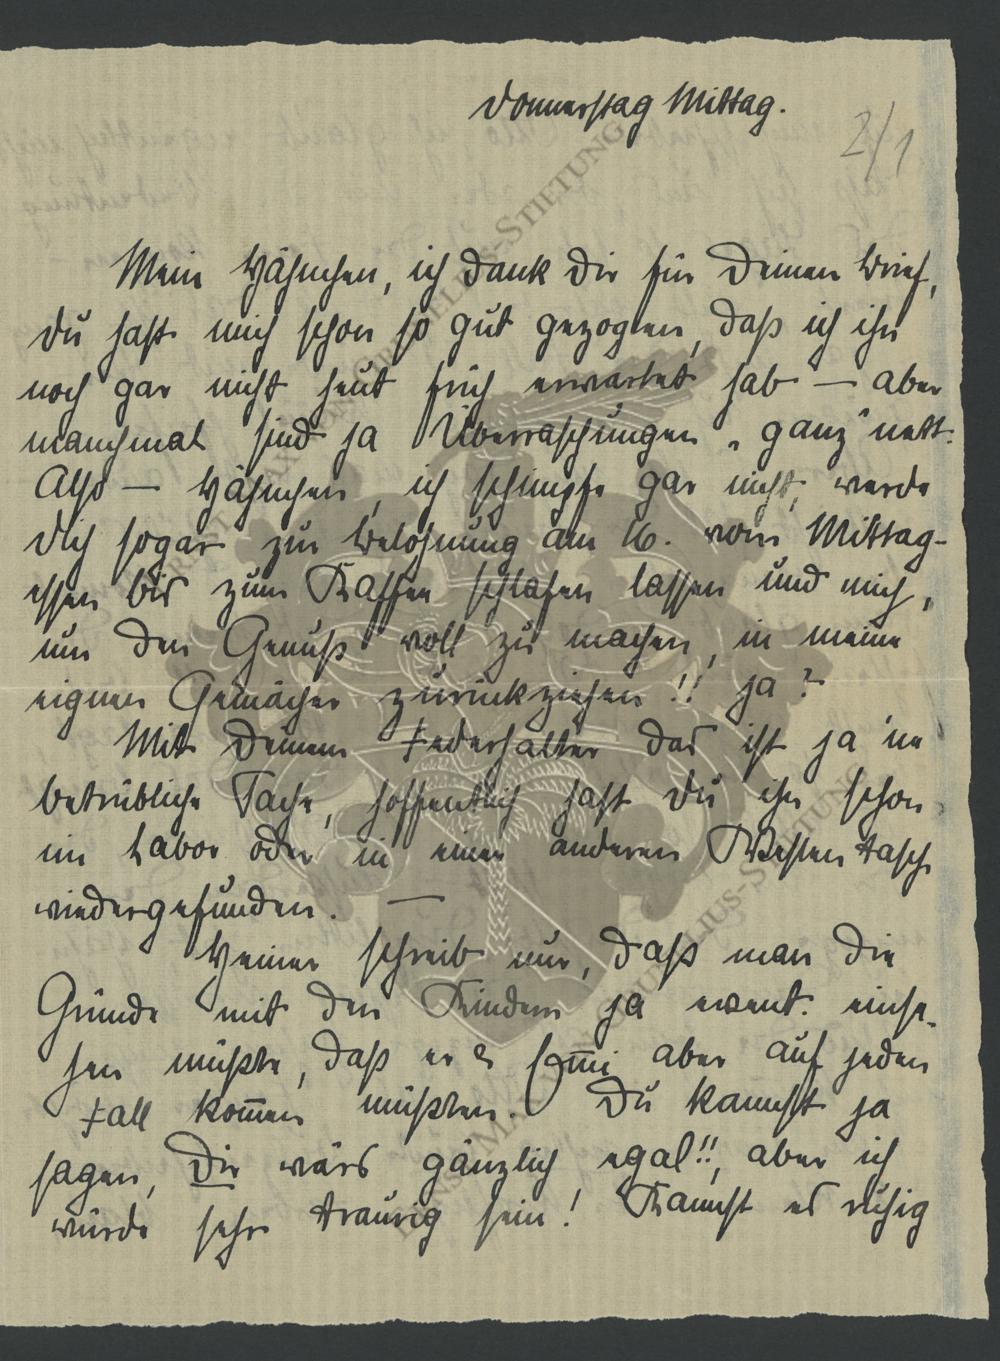 Donnerstag Mittag.
2/1
Mein Hähnchen, ich dank Dir für Deinen Brief,
Du hast mich schon so gut gezogen, daß ich ihn
noch gar nicht heut früh erwartet hab — aber
manchmal sind ja Überraschungen „ganz" nett.
Also — Hähnchen, ich schimpfe gar nicht, werde
Dich sogar zur Belohnung am 16. vom Mittag-
essen bis zum Kaffee schlafen lassen und mich,
um den Genuß voll zu machen, in meine
eignen Gemächer zurückziehen!! ja?
Mit Deinem Federhalter das ist ja 'ne
betrübliche Sache, hoffentlich hast Du ihn schon
im Labor oder in einer anderen Westentasche
wiedergefunden. —
Heiner schreib nur, daß man die
Gründe mit den Kindern ja event. einse-
hen müßte, daß er & aber auf jeden
Fall kom̅en müßten. Du kannst ja
sagen, Dir wärs gänzlich egal!!, aber ich
würde sehr traurig sein! Kannst es ruhig